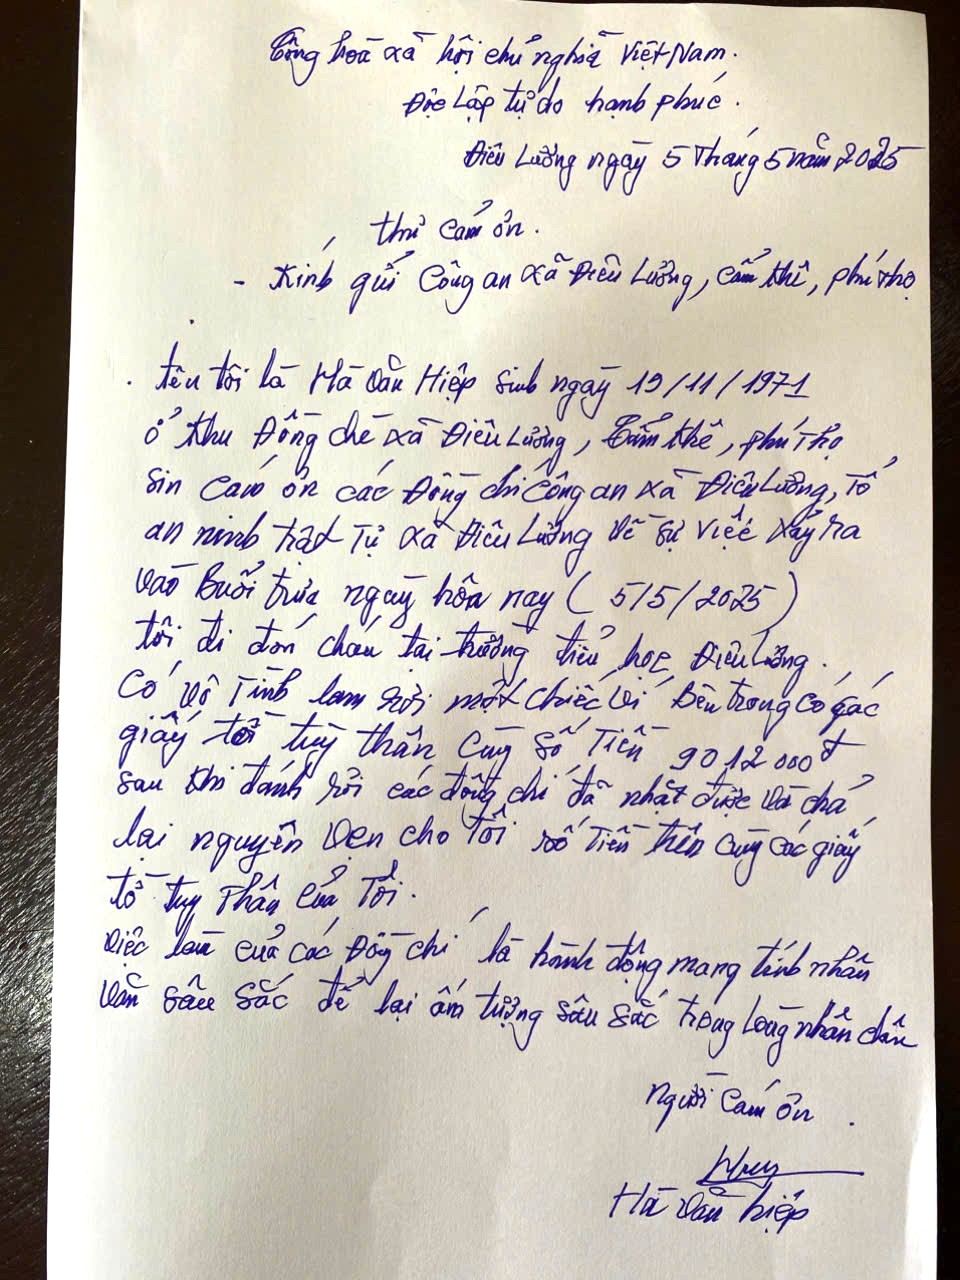 Cộng hoà xã hội chủ nghĩa Việt Nam.
Độc Lập tự do hạnh phúc.
Điêu Lương ngày 5 Tháng 5 năm 2025
Thư cảm ơn.
- Kính gửi Công an xã Điêu Lương, Cẩm Khê, phú thọ
. tên tôi là Hà Văn Hiệp sinh ngày 19/11/1971
ở khu Đồng chè xã Điêu Lương, Cẩm Khê, phú Thọ
sin cảm ơn các Đồng chí Công an xã Điêu Lương, Tổ
an ninh trật Tự xã Điêu Lương về sự việc xảy ra
vào Buổi trưa ngày hôm nay (5/5/2025)
tôi đi đón cháu tại trường tiểu học Điêu Lương.
Có vô Tình làm rơi một chiếc ví Bên trong có các
giấy tờ tùy thân cùng số Tiền 9012000đ
sau khi đánh rơi các đồng chí đã nhặt được và chả
lại nguyên vẹn cho Tôi số Tiền trên cùng các giấy
tờ tùy thân của Tôi.
Việc làm của các Đồng chí là hành động mang tính nhân
văn sâu sắc để lại ấm tượng sâu sắc trong lòng nhân dân
Người Cảm ơn.
Hà Văn Hiệp